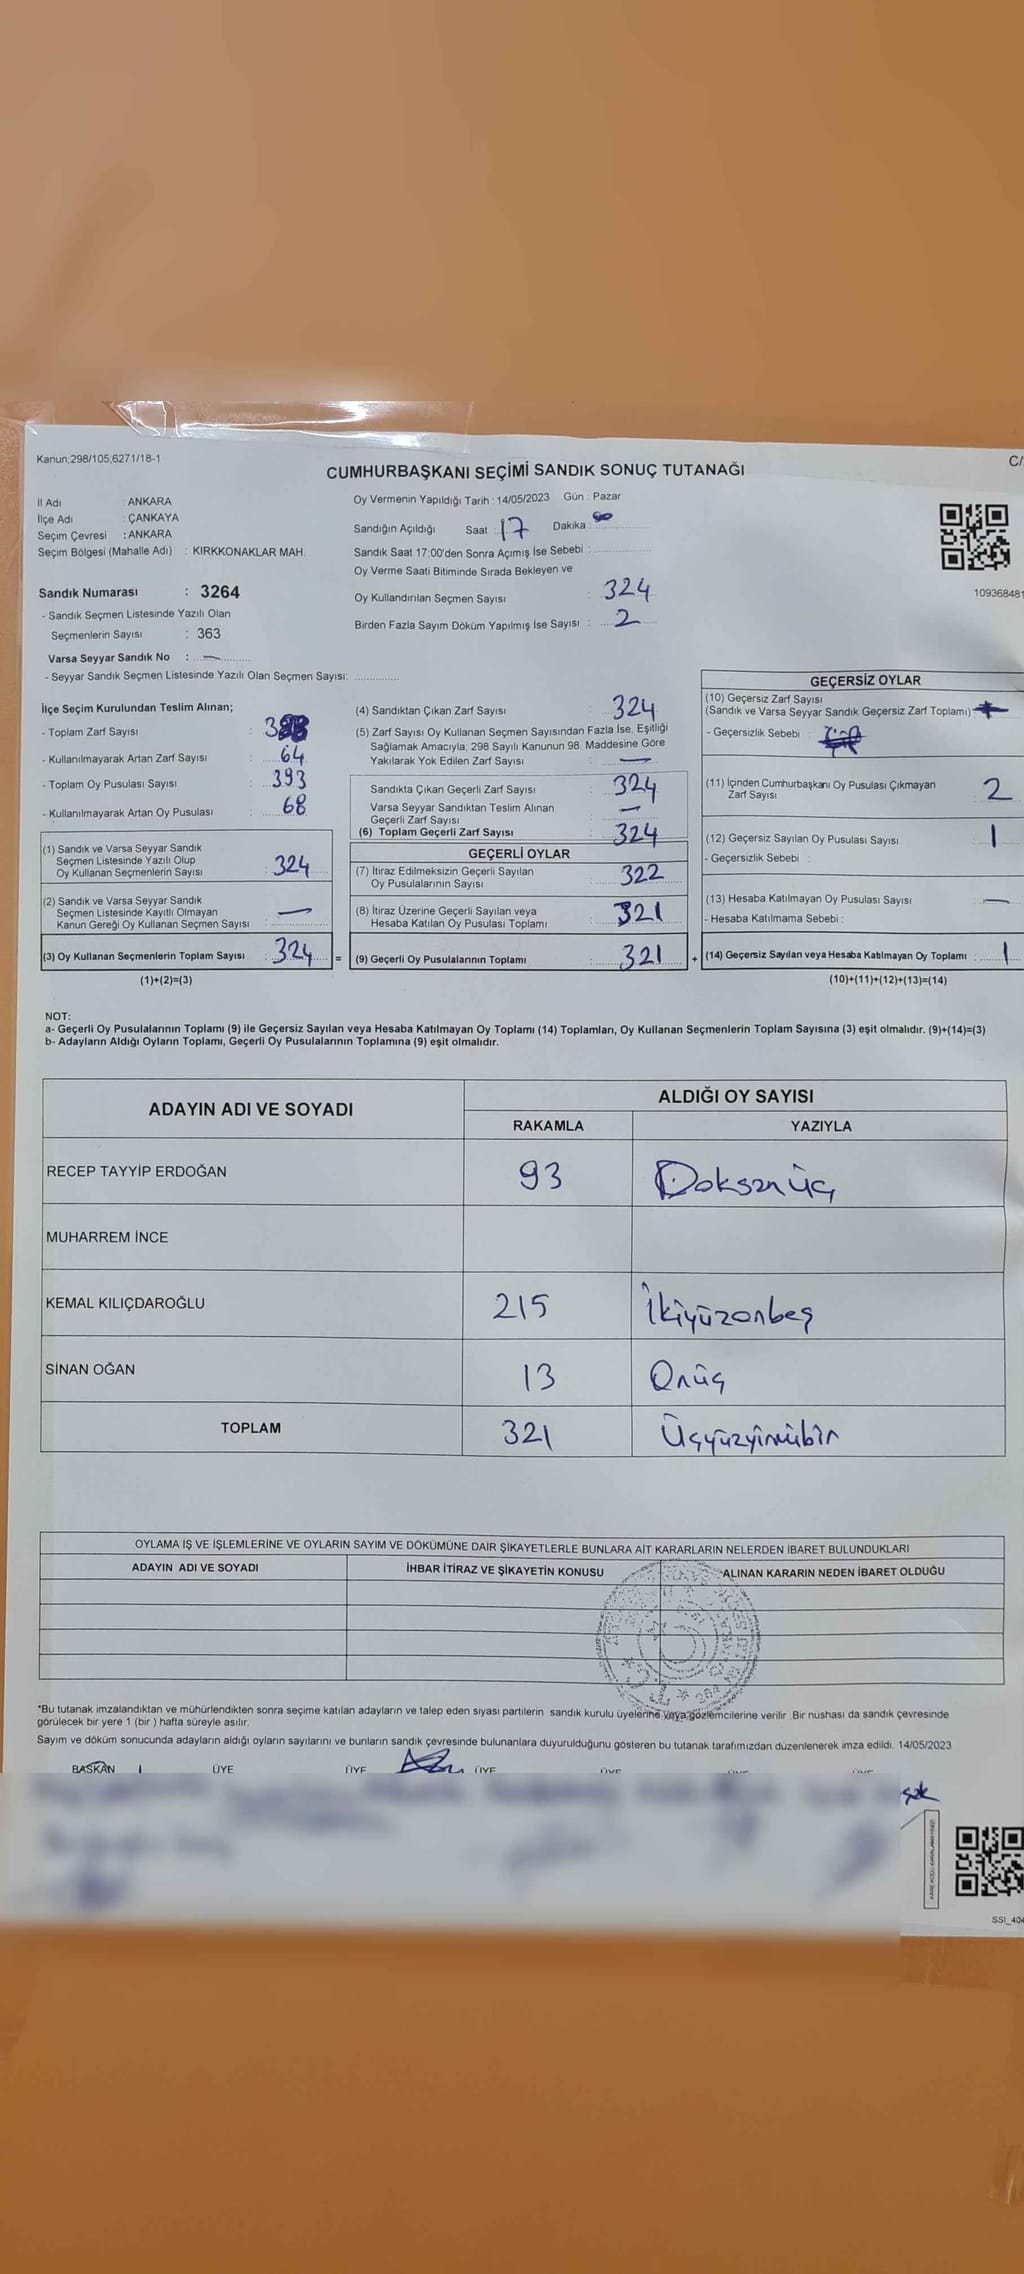 Kanun;298/105,6271/18-1
C/
CUMHURBAŞKANI SEÇİMİ SANDIK SONUÇ TUTANAĞI
İl Adı : ANKARA
İlçe Adı : ÇANKAYA
Seçim Çevresi : ANKARA
Seçim Bölgesi (Mahalle Adı) : KIRKKONAKLAR MAH.
Oy Vermenin Yapıldığı Tarih : 14/05/2023 Gün : Pazar
Sandığın Açıldığı Saat : 17 Dakika :
Sandık Saat 17:00'den Sonra Açımış İse Sebebi :
Oy Verme Saati Bitiminde Sırada Bekleyen ve
Oy Kullandırılan Seçmen Sayısı : 324
Birden Fazla Sayım Döküm Yapılmış İse Sayısı : 2
109368481
Sandık Numarası : 3264
- Sandık Seçmen Listesinde Yazılı Olan
Seçmenlerin Sayısı : 363
Varsa Seyyar Sandık No : —
- Seyyar Sandık Seçmen Listesinde Yazılı Olan Seçmen Sayısı:
İlçe Seçim Kurulundan Teslim Alınan;
- Toplam Zarf Sayısı :
- Kullanılmayarak Artan Zarf Sayısı : 64
- Toplam Oy Pusulası Sayısı : 393
- Kullanılmayarak Artan Oy Pusulası : 68
(1) Sandık ve Varsa Seyyar Sandık
Seçmen Listesinde Yazılı Olup
Oy Kullanan Seçmenlerin Sayısı : 324
(2) Sandık ve Varsa Seyyar Sandık
Seçmen Listesinde Kayıtlı Olmayan
Kanun Gereği Oy Kullanan Seçmen Sayısı : —
(3) Oy Kullanan Seçmenlerin Toplam Sayısı : 324 =
(1)+(2)=(3)
(4) Sandıktan Çıkan Zarf Sayısı : 324
(5) Zarf Sayısı Oy Kullanan Seçmen Sayısından Fazla İse, Eşitliği
Sağlamak Amacıyla; 298 Sayılı Kanunun 98. Maddesine Göre
Yakılarak Yok Edilen Zarf Sayısı : —
Sandıkta Çıkan Geçerli Zarf Sayısı : 324
Varsa Seyyar Sandıktan Teslim Alınan
Geçerli Zarf Sayısı : —
(6) Toplam Geçerli Zarf Sayısı : 324
GEÇERLİ OYLAR
(7) İtiraz Edilmeksizin Geçerli Sayılan
Oy Pusulalarının Sayısı : 322
(8) İtiraz Üzerine Geçerli Sayılan veya
Hesaba Katılan Oy Pusulası Toplamı : 321
(9) Geçerli Oy Pusulalarının Toplamı : 321 +
GEÇERSİZ OYLAR
(10) Geçersiz Zarf Sayısı
(Sandık ve Varsa Seyyar Sandık Geçersiz Zarf Toplamı)
- Geçersizlik Sebebi :
(11) İçinden Cumhurbaşkanı Oy Pusulası Çıkmayan
Zarf Sayısı : 2
(12) Geçersiz Sayılan Oy Pusulası Sayısı : 1
- Geçersizlik Sebebi :
(13) Hesaba Katılmayan Oy Pusulası Sayısı : —
- Hesaba Katılmama Sebebi :
(14) Geçersiz Sayılan veya Hesaba Katılmayan Oy Toplamı : 1
(10)+(11)+(12)+(13)=(14)
NOT:
a- Geçerli Oy Pusulalarının Toplamı (9) ile Geçersiz Sayılan veya Hesaba Katılmayan Oy Toplamı (14) Toplamları, Oy Kullanan Seçmenlerin Toplam Sayısına (3) eşit olmalıdır. (9)+(14)=(3)
b- Adayların Aldığı Oyların Toplamı, Geçerli Oy Pusulalarının Toplamına (9) eşit olmalıdır.
ADAYIN ADI VE SOYADI ALDIĞI OY SAYISI
RAKAMLA YAZIYLA
RECEP TAYYİP ERDOĞAN 93 Doksanüç
MUHARREM İNCE
KEMAL KILIÇDAROĞLU 215 İkiyüzonbeş
SİNAN OĞAN 13 Onüç
TOPLAM 321 Üçyüzyirmibir
OYLAMA İŞ VE İŞLEMLERİNE VE OYLARIN SAYIM VE DÖKÜMÜNE DAİR ŞİKAYETLERLE BUNLARA AİT KARARLARIN NELERDEN İBARET BULUNDUKLARI
ADAYIN ADI VE SOYADI İHBAR İTİRAZ VE ŞİKAYETİN KONUSU ALINAN KARARIN NEDEN İBARET OLDUĞU
*Bu tutanak imzalandıktan ve mühürlendikten sonra seçime katılan adayların ve talep eden siyasi partilerin sandık kurulu üyelerine veya gözlemcilerine verilir .Bir nüshası da sandık çevresinde
görülecek bir yere 1 (bir ) hafta süreyle asılır.
Sayım ve döküm sonucunda adayların aldığı oyların sayılarını ve bunların sandık çevresinde bulunanlara duyurulduğunu gösteren bu tutanak tarafımızdan düzenlenerek imza edildi. 14/05/2023
BAŞKAN ÜYE ÜYE ÜYE ÜYE ÜYE ÜYE
KARE KODU KARALAMAYINIZ!
SSI_404